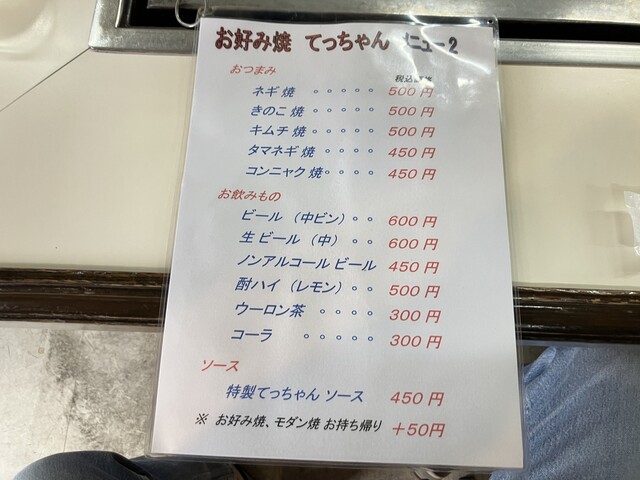 お好み焼 てっちゃん メニュー2
おつまみ 税込価格
ネギ 焼 ○ ○ ○ ○ ○ 500 円
きのこ 焼 ○ ○ ○ ○ ○ 500 円
キムチ 焼 ○ ○ ○ ○ ○ 500 円
タマネギ 焼 ○ ○ ○ ○ 450 円
コンニャク 焼○ ○ ○ ○ 450 円
お飲みもの
ビール (中ビン) ○ ○ 600 円
生 ビール (中) ○ ○ 600 円
ノンアルコール ビール 450 円
酎ハイ (レモン) ○ ○ 500 円
ウーロン茶 ○ ○ ○ ○ 300 円
コーラ ○ ○ ○ ○ ○ 300 円
ソース
特製てっちゃん ソース 450 円
※ お好み焼、モダン焼 お持ち帰り +50円